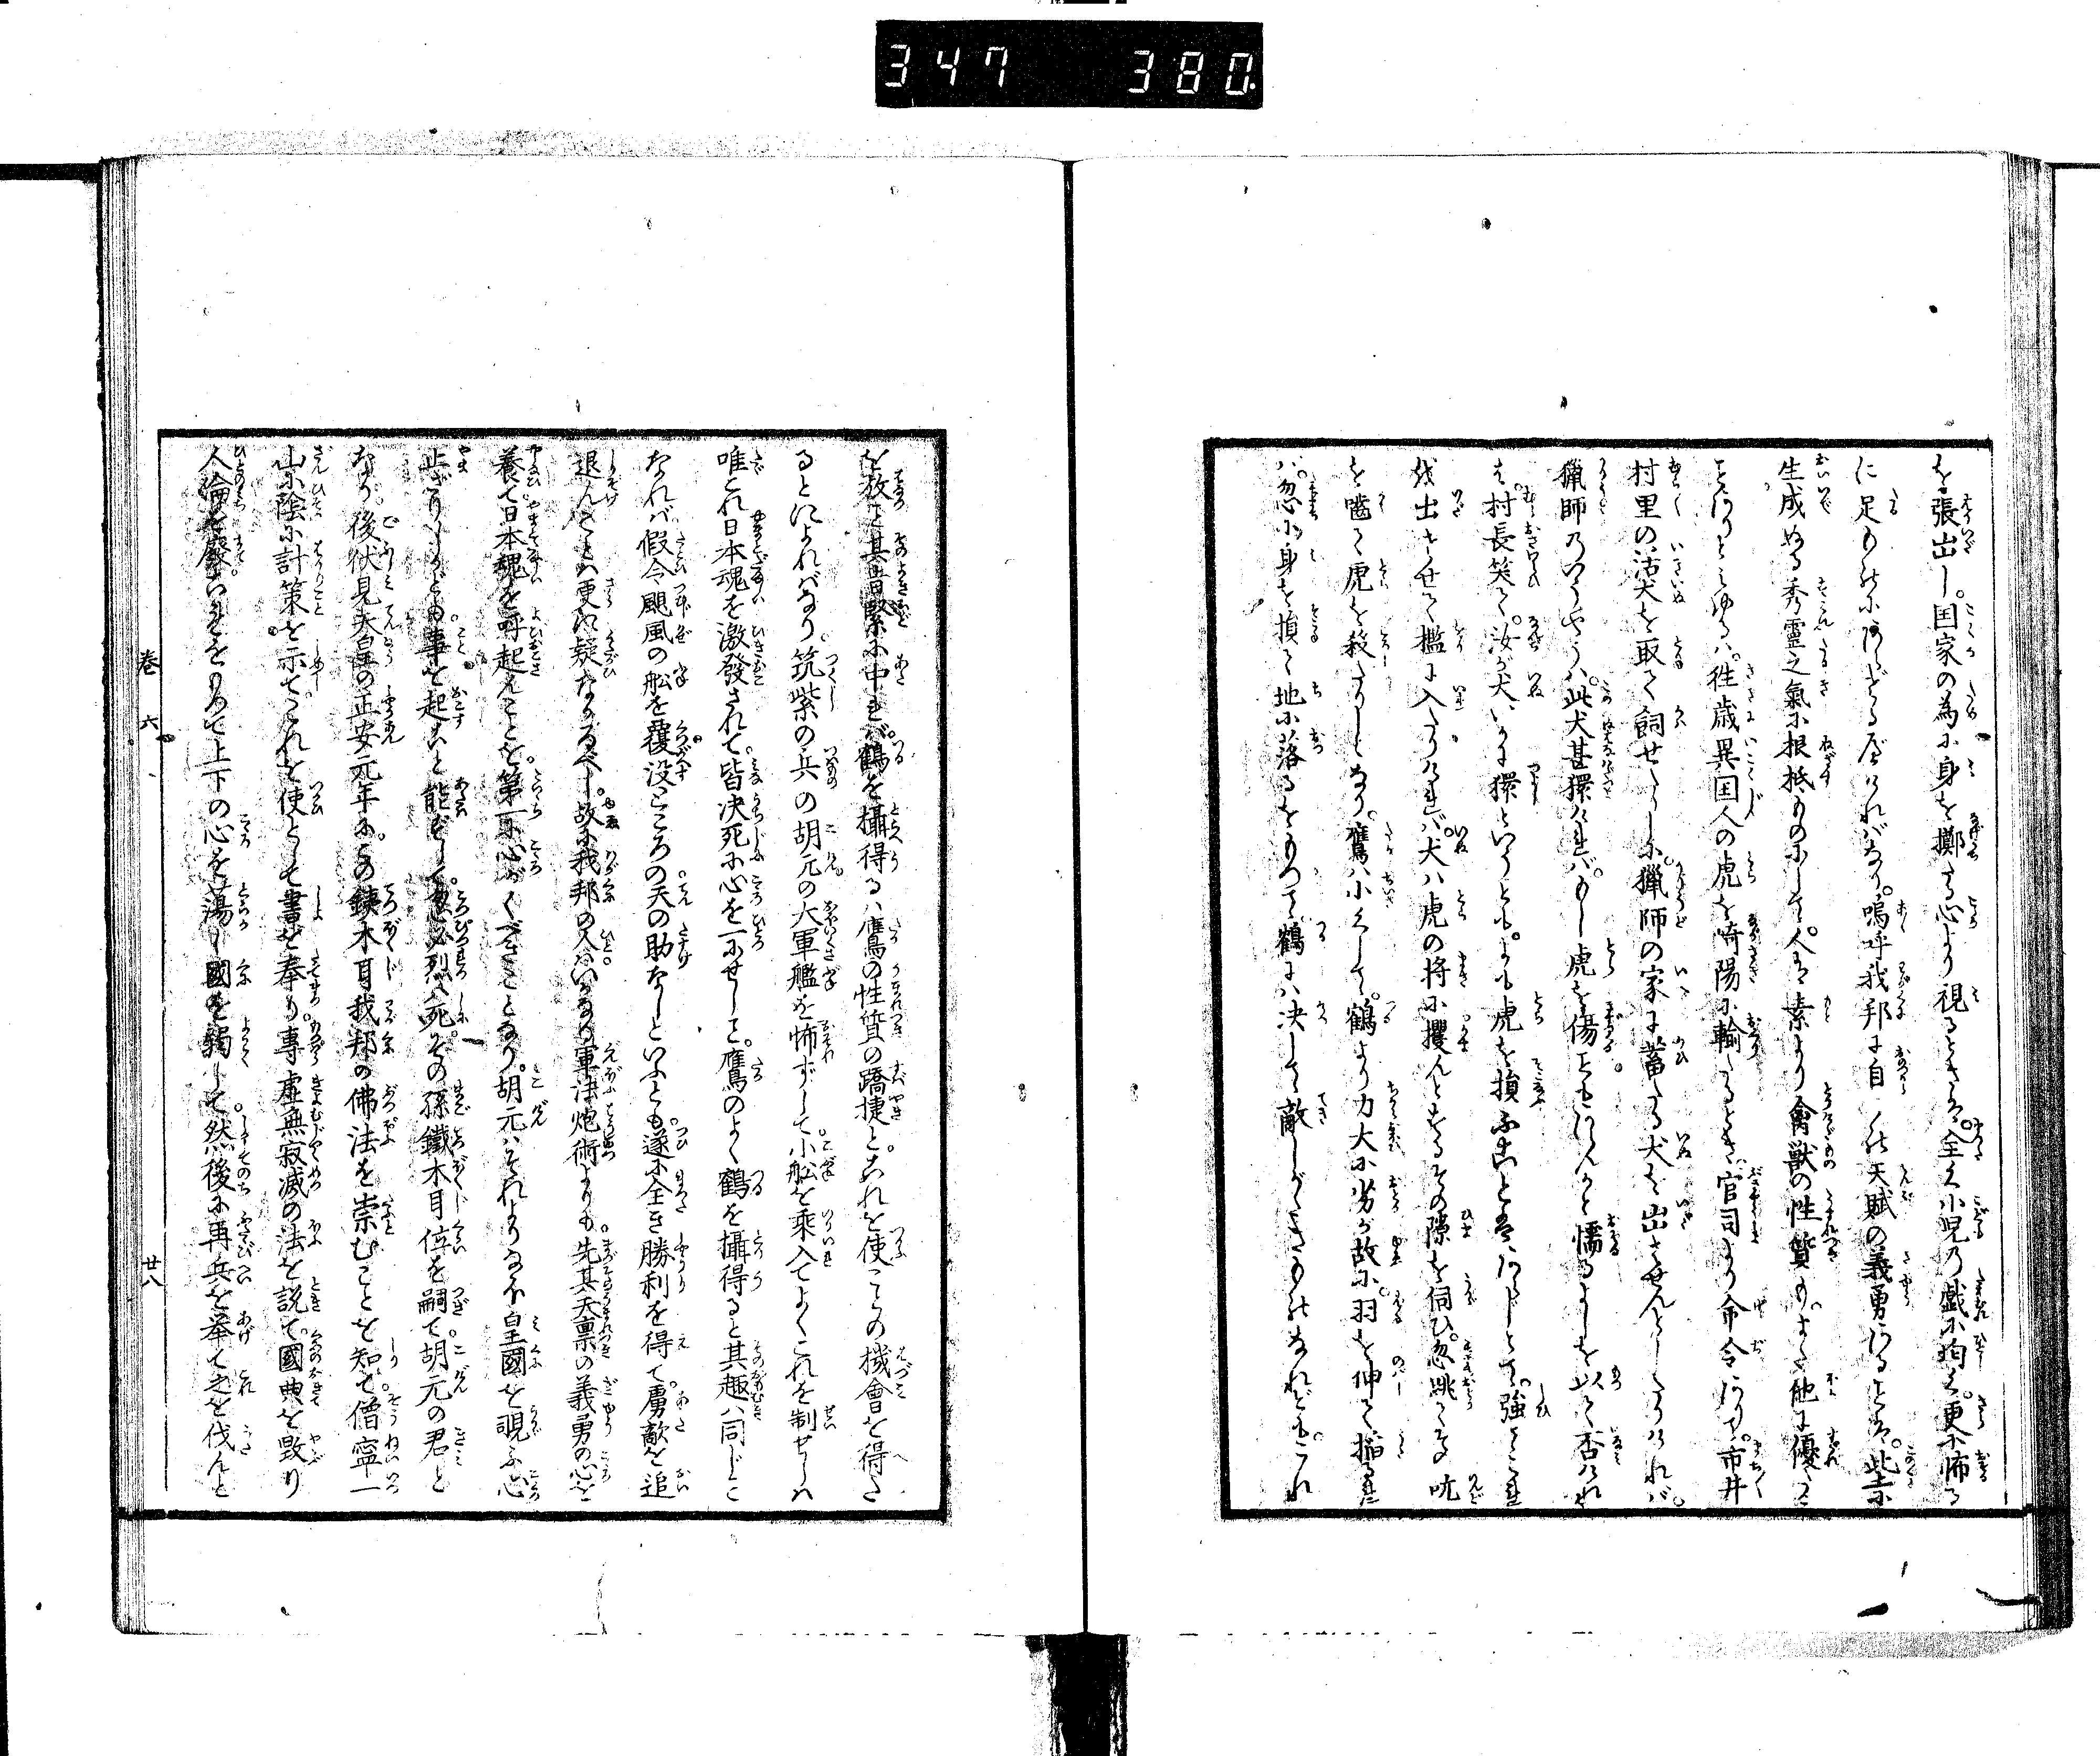 347 380
を張出し。国家の為に身を擲る心より視るときは。全く小児の戯に均く。更に怖る
に足ものにあらざるなければなり。嗚呼我邦に自ら天賦の義勇あることは。此土に
生成ぬる秀霊之氣に根抵ものにして。人は素より禽獣の性質も。また他に優たる
ことありとみゆるハ。往歳異国人の虎を崎陽に輸したるとき。官司より命令ありて。市井
村里の活犬を取て飼せたりしに。獵師の家に畜たる犬を出させんとしたりければ。
獵師のいふやうハ。此犬甚獷ければ。もし虎を傷こともあらんかと懦るよしを以て否けれ
は。村長笑て。汝が犬いかに獷といふとも。よも虎を損ふことはあらじとて。強てこれ
を出させて檻に入たりければ。犬ハ虎の将に攫んとするその隙を伺ひ。忽跳てその吭
を噛て虎を殺せりとなり。鷹ハ小くして。鶴より力大に劣が故に。羽を伸て搦るれ
バ。忽に身を損て地に落るをもつて鶴にハ決して敵しがたきものなれども。これ
を放て其昔緊に中れば。鶴を攝得るハ鷹の性質の蹻捷と。これを使ころの機會を得た
るとによればなり。筑紫の兵の胡元の大軍艦を怖ずして小舩を乘入てよくこれを制せしハ
唯これ日本魂を激發されて。皆决死に心を一にせしと。鷹のよく鶴を攝得ると其趣ハ同じこと
なれバ假令颶風の舩を覆没ところの天の助なしといふとも。遂に全き勝利を得て。虜敵を追
退んことは更に疑なかるべし。故に我邦の人ハいかなる軍法炮術よりも。先其天禀の義勇の心を
養て日本魂を呼起すことを。第一に心がくべきことなり。胡元ハそれよりなほ皇國を覗ふ心
止ざりしかども。事を起こと能ずして。忽必烈ハ死。その孫鐵木耳位を嗣て。胡元の君と
なり。後伏見天皇の正安元年に。その鐵木耳我邦の佛法を崇むことを知て。僧寧一
山に陰に計策を示て。これを使として書を奉り。專虛無寂滅の法を説て。國典を毀り
人倫を廢ことをもつて上下の心を蕩し國を弱して。然後に再兵を举て之を伐んと
巻六
廿八